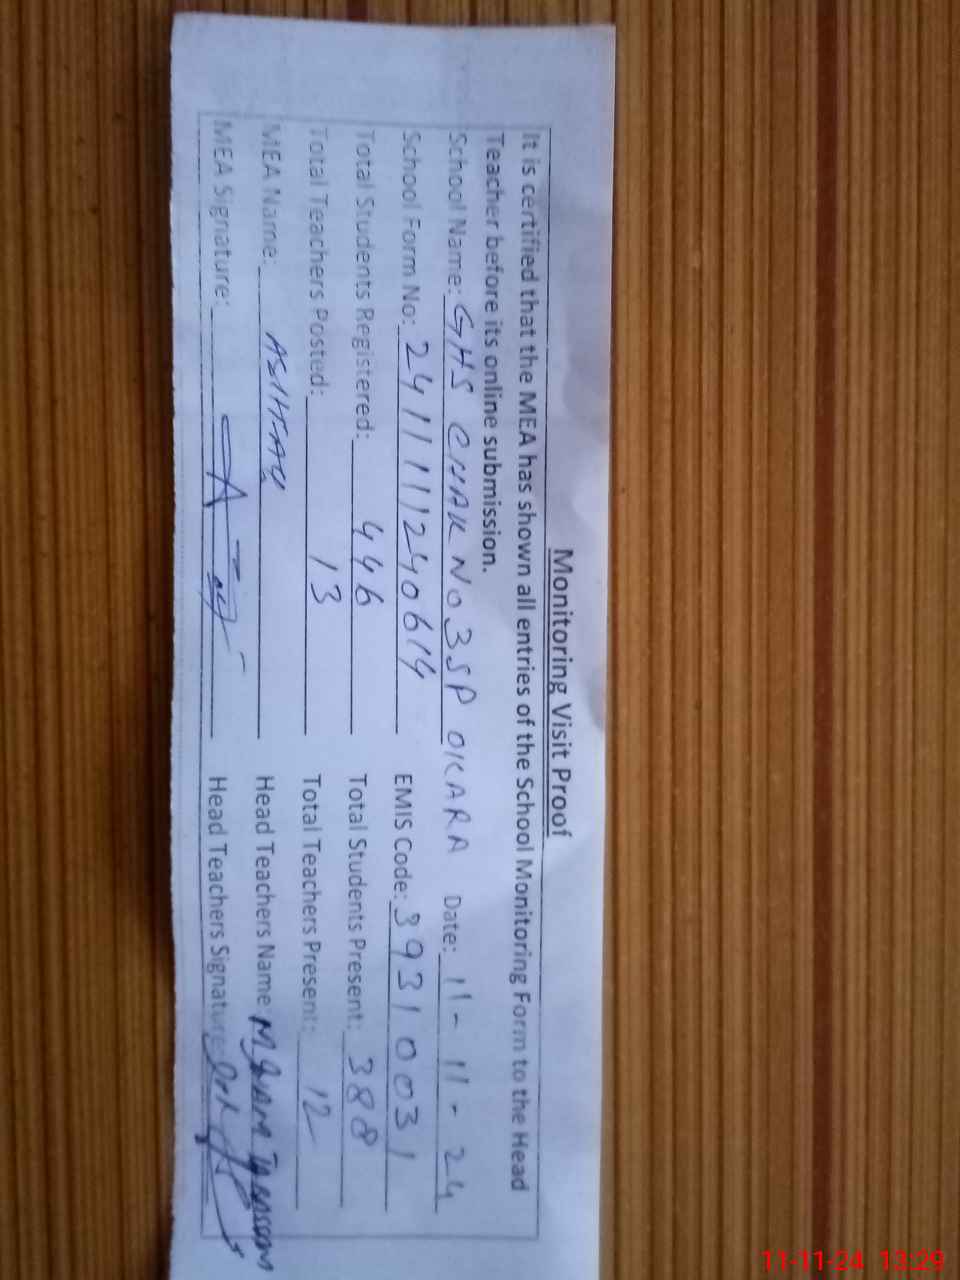 Monitoring Visit Proof
It is certified that the MEA has shown all entries of the School Monitoring Form to the Head
Teacher before its online submission.
School Name: GHS CHAK NO 3SP OKARA Date: 11-11-24
School Form No: 241111240614 EMIS Code: 39310031
Total Students Registered: 446 Total Students Present: 388
Total Teachers Posted: 13 Total Teachers Present: 12
MEA Name: Head Teachers Name
MEA Signature: Head Teachers Signature
11-11-24 13:29